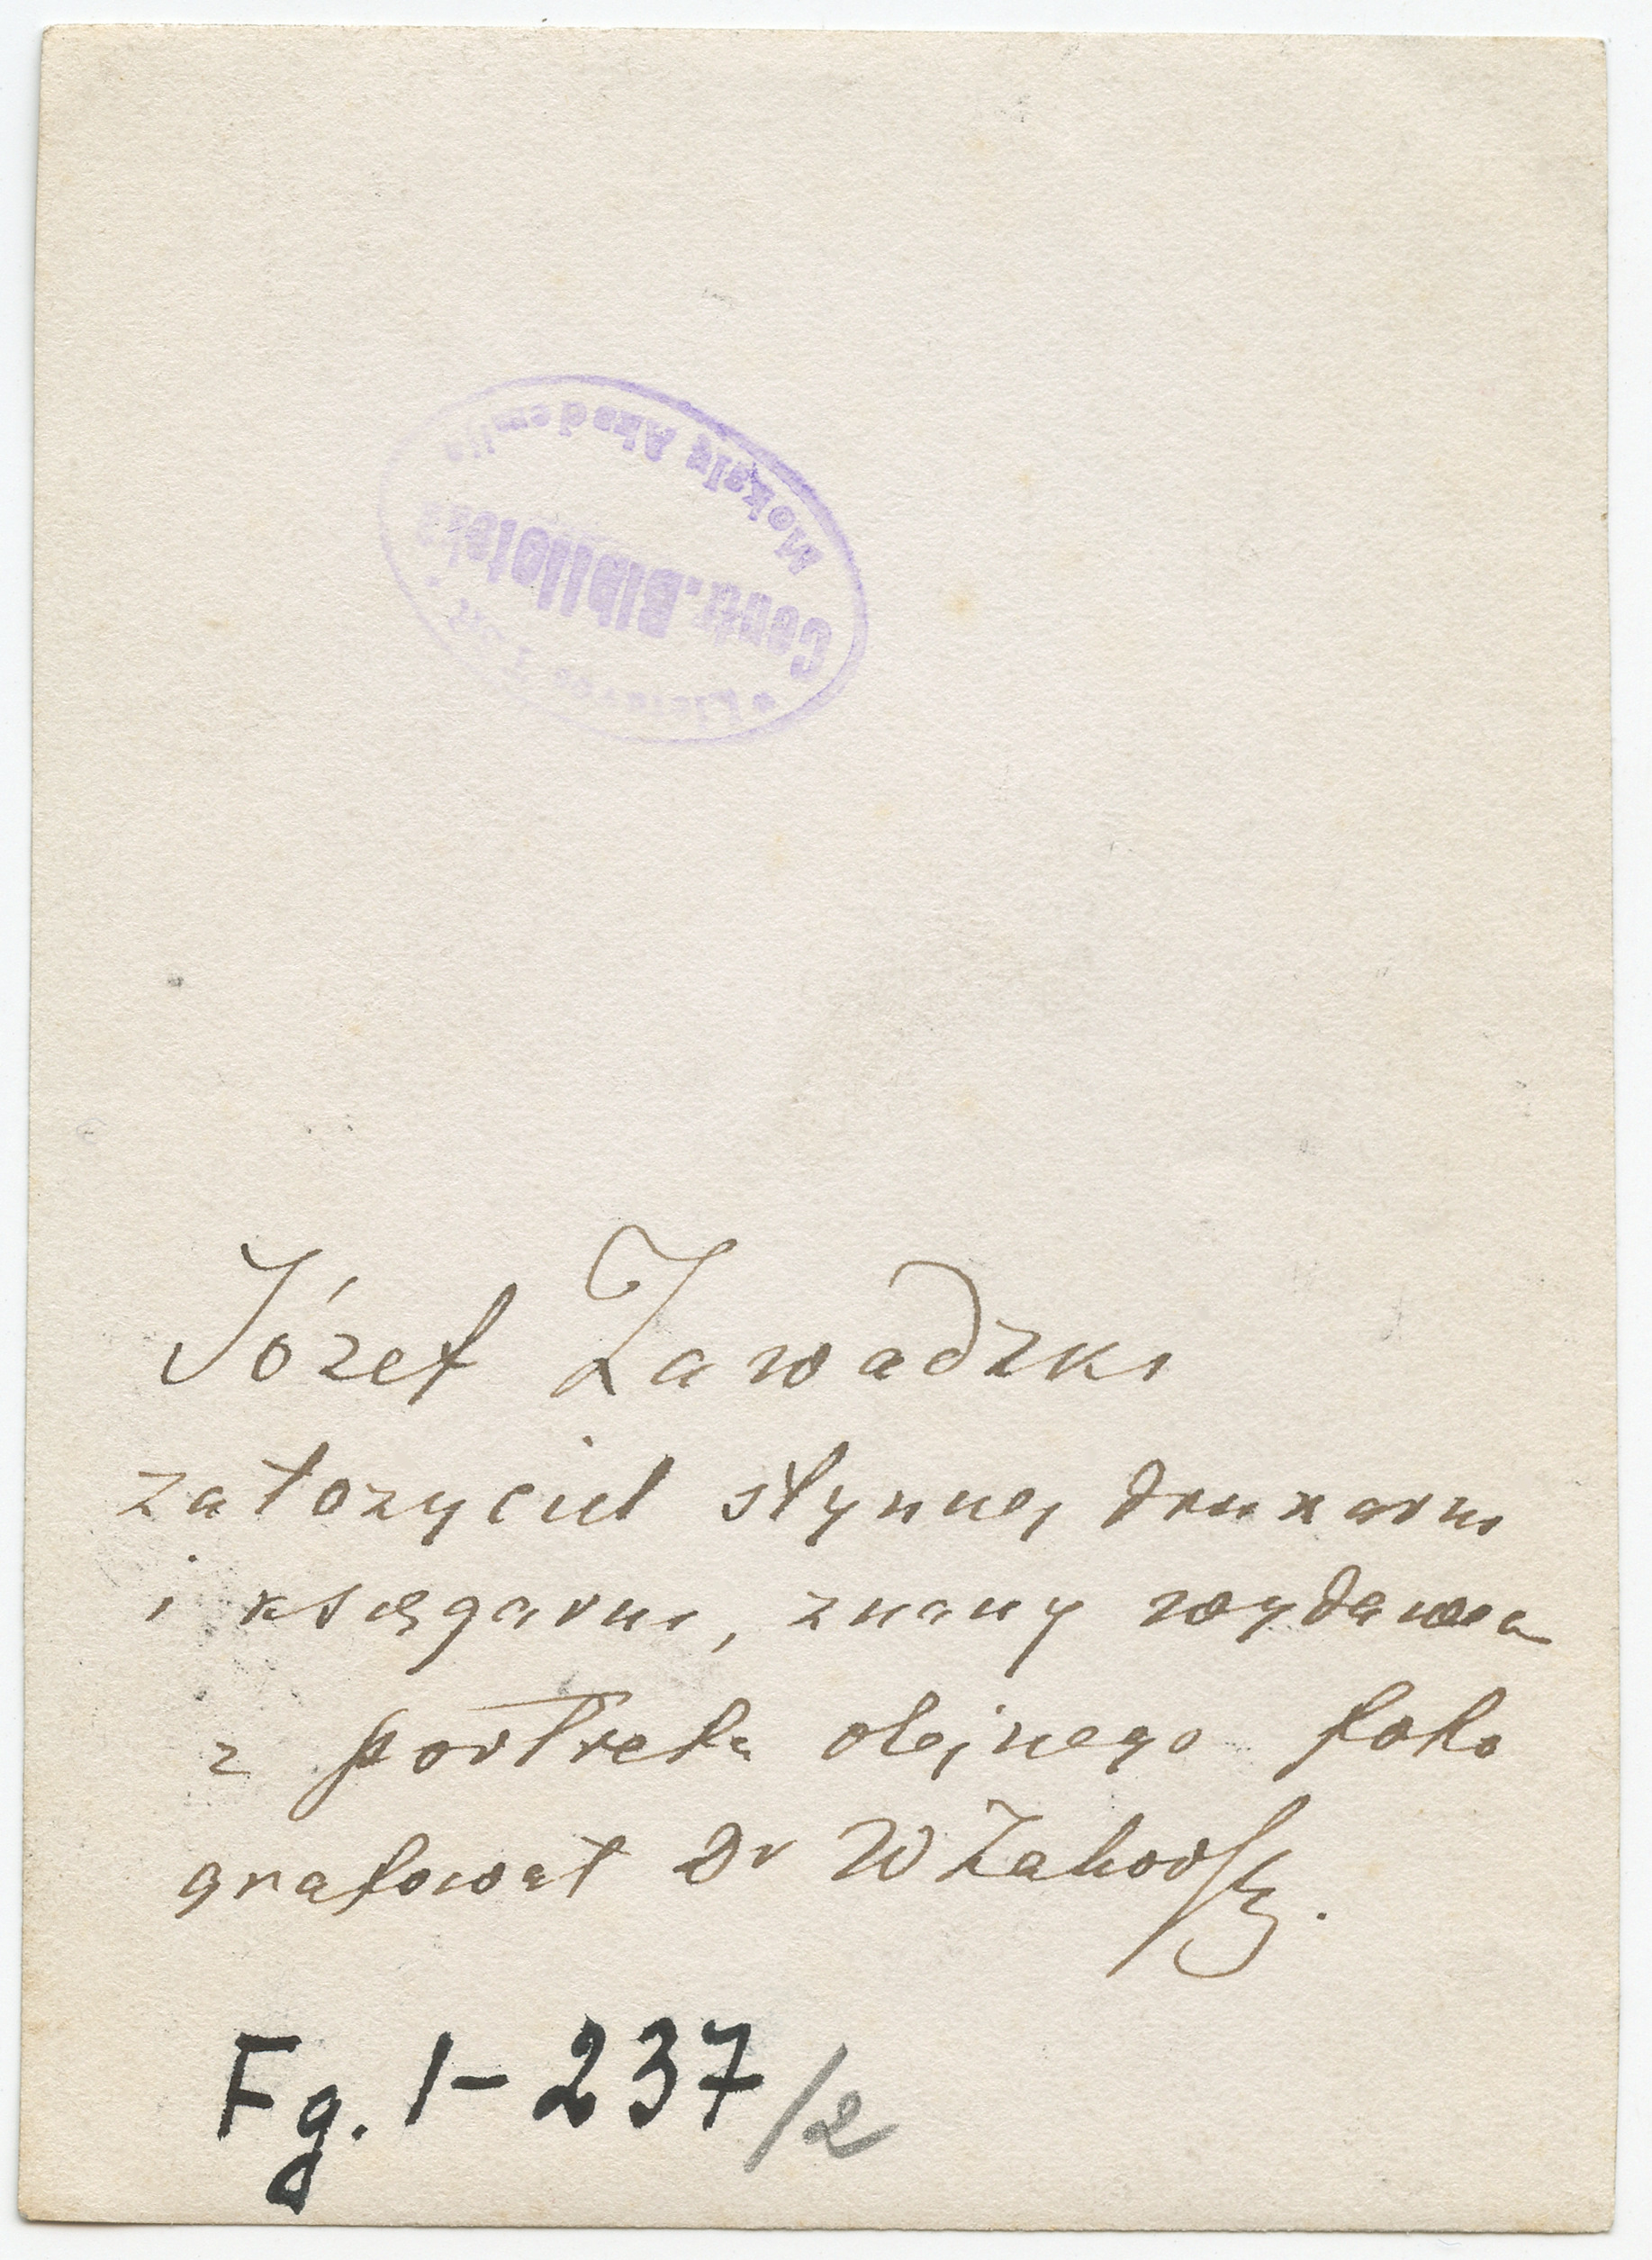 Mokslų Akademija
Centr. Biblioteka
Józef Zawadzki
założyciel słynnej drukarni
i księgarni, znany wydawca
z portretu olejnego foto
grafował Dr W Zahorski.
Fg. 1-237/2